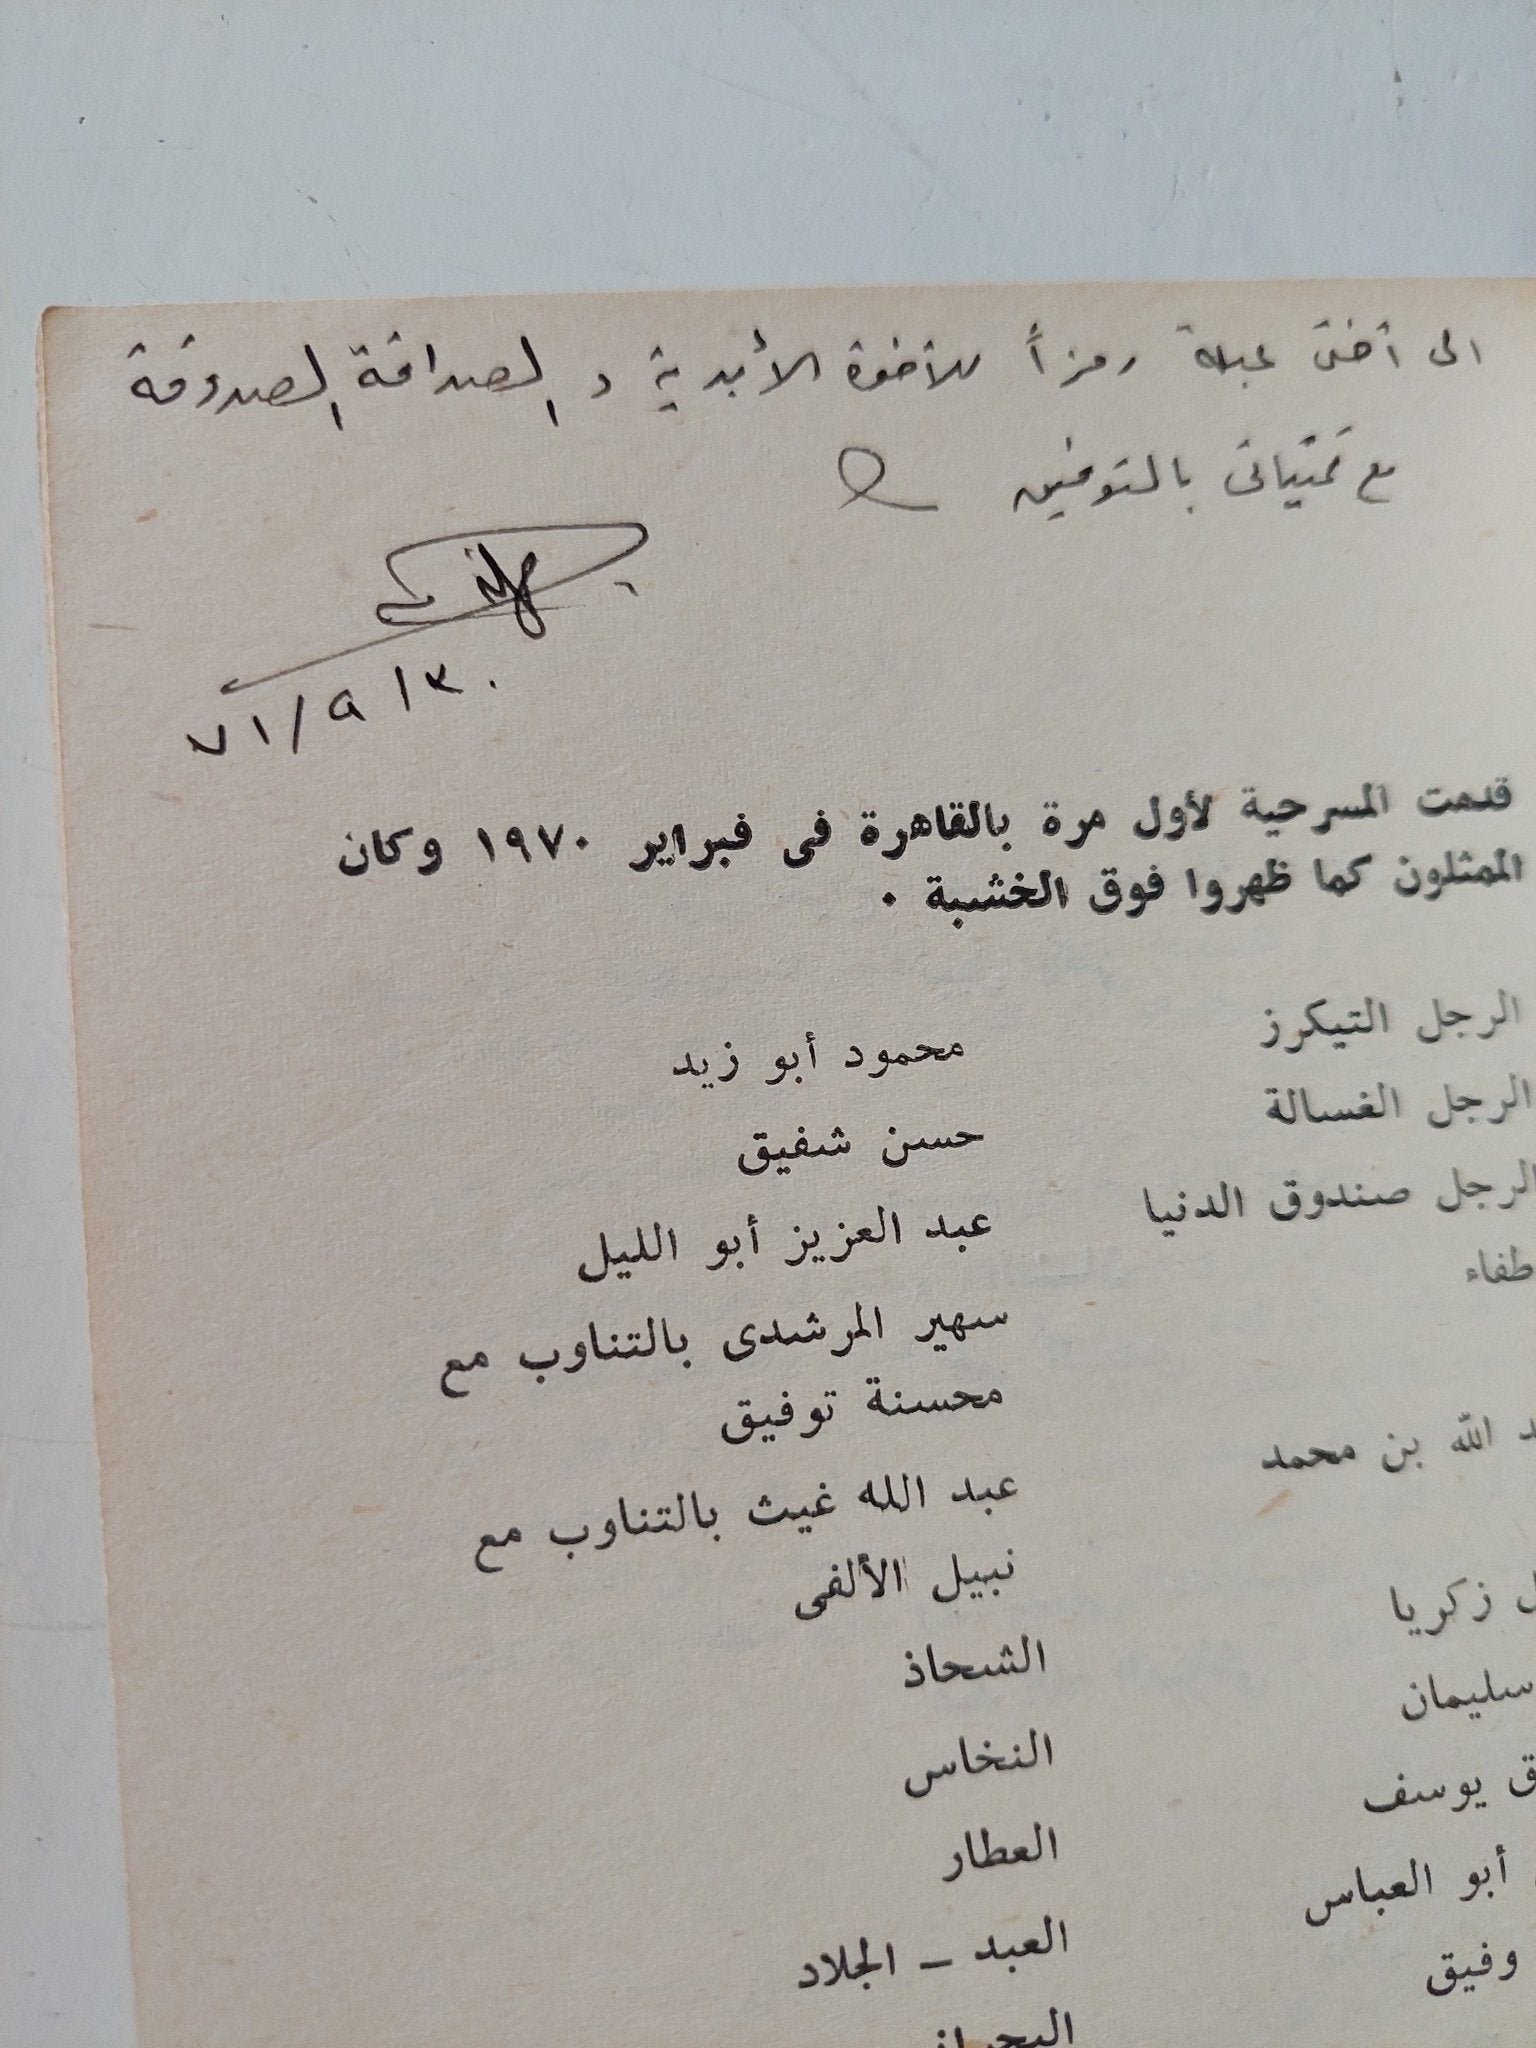 الى أختى عبلة رمزاً للأخوة الأبدية و الصداقة الصدوقة
مع تمنياتى بالتوفيق
٣٠ / ٩ / ٧١
قدمت المسرحية لأول مرة بالقاهرة فى فبراير ١٩٧٠ وكان
الممثلون كما ظهروا فوق الخشبة .
الرجل التيكرز محمود أبو زيد
الرجل الغسالة حسن شفيق
الرجل صندوق الدنيا عبد العزيز أبو الليل
طفاء سهير المرشدى بالتناوب مع
محسنة توفيق
د الله بن محمد عبد الله غيث بالتناوب مع
نبيل الألفى
ل زكريا الشحاذ
سليمان النخاس
ق يوسف العطار
أبو العباس العبد ــ الجلاد
وفيق